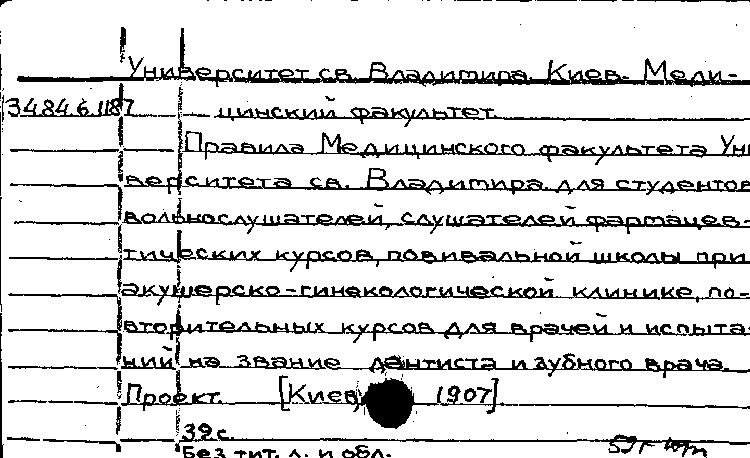 Университет св. Владимира. Киев. Меди-
3484.6.1187 цинский факультет.
Правила Медицинского факультета Уни
верситета св. Владимира для студентов
вольнослушателей, слушателей фармацев-
тических курсов, повивальной школы при
акушерско-гинекологической клинике, по-
вторительных курсов для врачей и испыта-
ний на звание дантиста и зубного врача.
Проект. [Киев, 1907].
39 с.
Без тит. л. и обл.